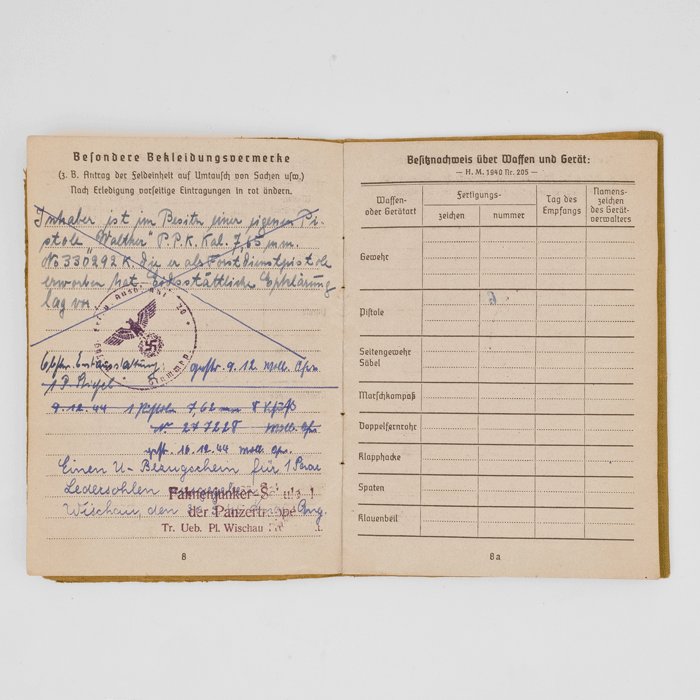 Besondere Bekleidungsvermerke
(z. B. Antrag der Feldeinheit auf Umtausch von Sachen usw.)
Nach Erledigung vorseitige Eintragungen in rot ändern.
Inhaber ist im Besitz einer eigenen Pi-
stole "Walther" P.P.K. Kal. 7,65 mm.
No 330292K. die er als Forstdienstpistole
erworben hat. Eidesstattliche Erklärung
lag vor.
9. 12.
9. 12. 44 1 Pistole 7,62 mm 8
Nr 277228
16. 12. 44
Einen U-Bezugschein für 1 Paar
Ledersohlen
Wischau, den
Fahnenjunker-Schule
der Panzertruppe
Tr. Ueb. Pl. Wischau
8
Besitznachweis über Waffen und Gerät:
— H. M. 1940 Nr. 205 —
Waffen-
oder Gerätart
Fertigungs-
zeichen
nummer
Tag des
Empfangs
Namens-
zeichen
des Gerät-
verwalters
Gewehr
Pistole
Seitengewehr
Säbel
Marschkompaß
Doppelfernrohr
Klapphacke
Spaten
Klauenbeil
8a